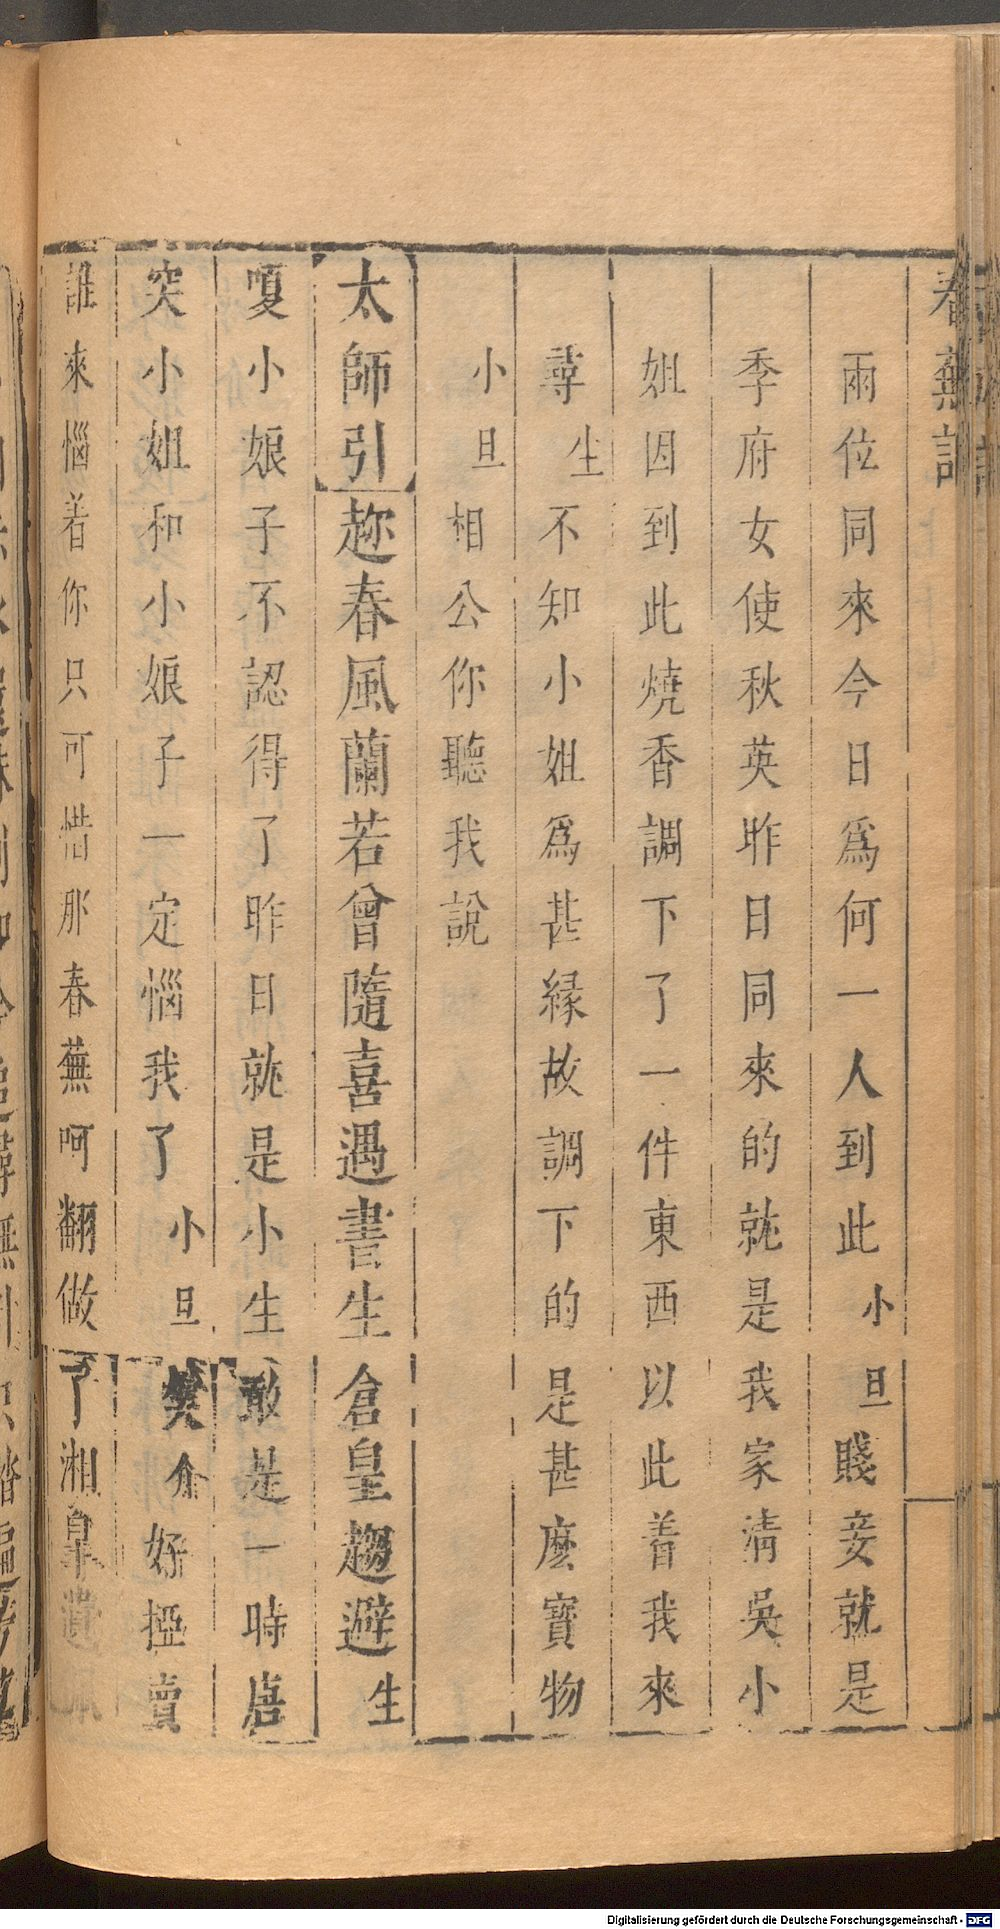 春蕪記
兩位同來今日爲何一人到此小旦賤妾就是
季府女使秋英昨日同來的就是我家清吳小
姐因到此燒香調下了一件東西以此着我來
尋生不知小姐爲甚緣故調下的是甚麽寶物
小旦相公你聽我說
太師引趂春風蘭若曾隨喜遇書生倉皇趨避生
嗄小娘子不認得了昨日就是小生敢是一時唐
突小姐和小娘子一定惱我了小旦笑介好掗賣
誰來惱着你只可惜那春蕪呵翻做了湘皐遺珮
Digitalisierung gefördert durch die Deutsche Forschungsgemeinschaft - DFG